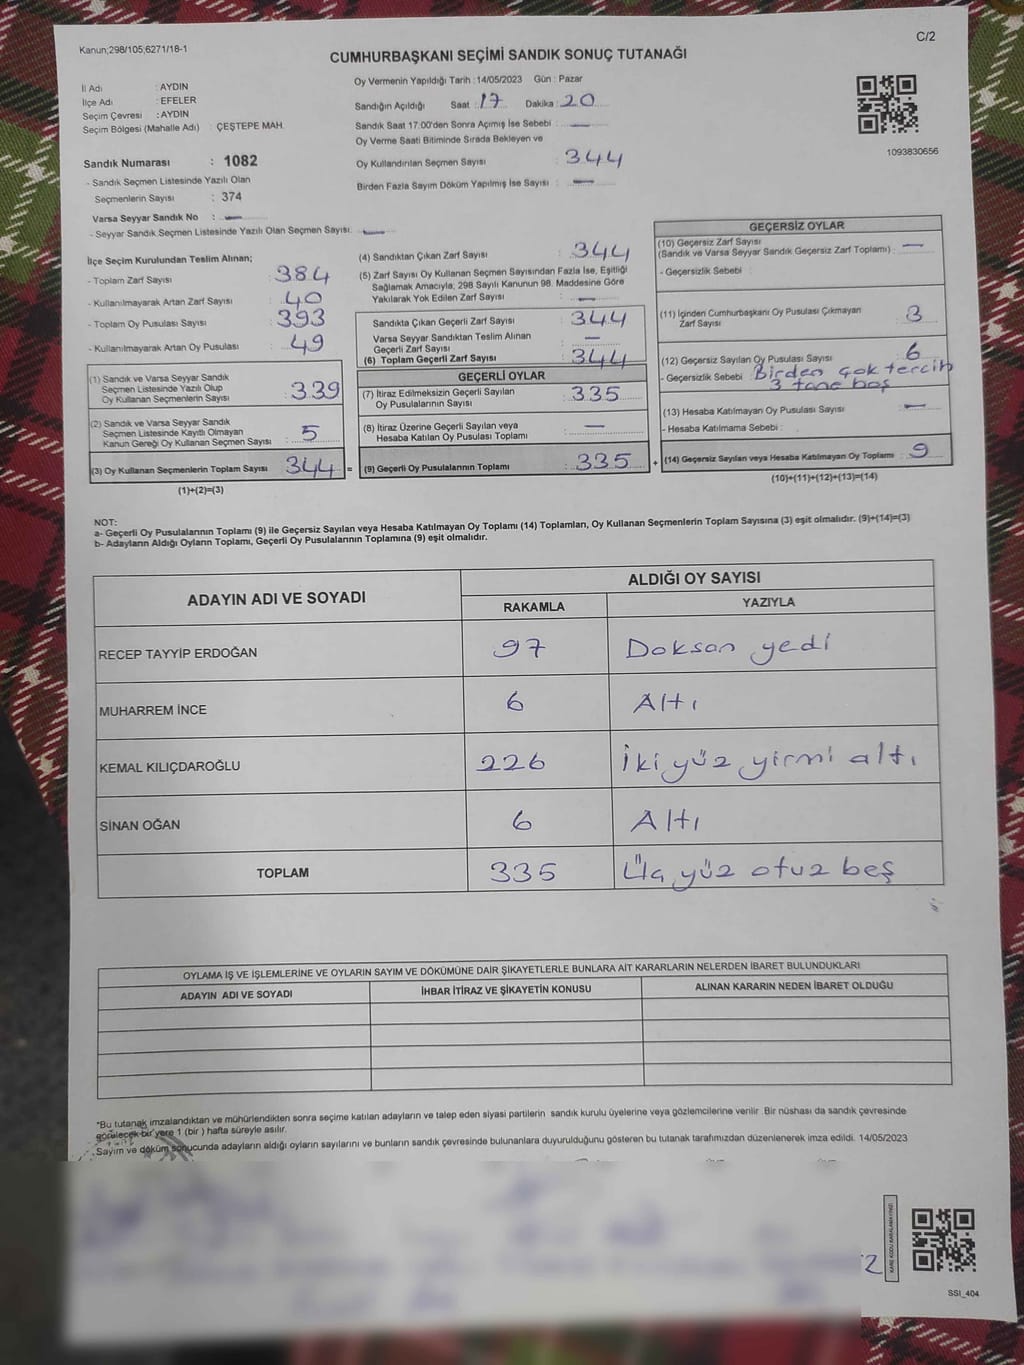 Kanun;298/105;6271/18-1
C/2
CUMHURBAŞKANI SEÇİMİ SANDIK SONUÇ TUTANAĞI
İl Adı : AYDIN
İlçe Adı : EFELER
Seçim Çevresi : AYDIN
Seçim Bölgesi (Mahalle Adı) : ÇEŞTEPE MAH.
Sandık Numarası : 1082
- Sandık Seçmen Listesinde Yazılı Olan
Seçmenlerin Sayısı : 374
Varsa Seyyar Sandık No : —
- Seyyar Sandık Seçmen Listesinde Yazılı Olan Seçmen Sayısı: —
Oy Vermenin Yapıldığı Tarih : 14/05/2023 Gün : Pazar
Sandığın Açıldığı Saat : 17 Dakika : 20
Sandık Saat 17.00'den Sonra Açımış İse Sebebi : —
Oy Verme Saati Bitiminde Sırada Bekleyen ve
Oy Kullandırılan Seçmen Sayısı : 344
Birden Fazla Sayım Döküm Yapılmış İse Sayısı : —
1093830656
İlçe Seçim Kurulundan Teslim Alınan;
- Toplam Zarf Sayısı : 384
- Kullanılmayarak Artan Zarf Sayısı : 40
- Toplam Oy Pusulası Sayısı : 393
- Kullanılmayarak Artan Oy Pusulası : 49
(1) Sandık ve Varsa Seyyar Sandık
Seçmen Listesinde Yazılı Olup
Oy Kullanan Seçmenlerin Sayısı : 339
(2) Sandık ve Varsa Seyyar Sandık
Seçmen Listesinde Kayıtlı Olmayan
Kanun Gereği Oy Kullanan Seçmen Sayısı : 5
(3) Oy Kullanan Seçmenlerin Toplam Sayısı : 344 =
(1)+(2)=(3)
(4) Sandıktan Çıkan Zarf Sayısı : 344
(5) Zarf Sayısı Oy Kullanan Seçmen Sayısından Fazla İse, Eşitliği
Sağlamak Amacıyla; 298 Sayılı Kanunun 98. Maddesine Göre
Yakılarak Yok Edilen Zarf Sayısı : —
Sandıkta Çıkan Geçerli Zarf Sayısı : 344
Varsa Seyyar Sandıktan Teslim Alınan
Geçerli Zarf Sayısı : —
(6) Toplam Geçerli Zarf Sayısı : 344
GEÇERLİ OYLAR
(7) İtiraz Edilmeksizin Geçerli Sayılan
Oy Pusulalarının Sayısı : 335
(8) İtiraz Üzerine Geçerli Sayılan veya
Hesaba Katılan Oy Pusulası Toplamı : —
(9) Geçerli Oy Pusulalarının Toplamı : 335 +
GEÇERSİZ OYLAR
(10) Geçersiz Zarf Sayısı
(Sandık ve Varsa Seyyar Sandık Geçersiz Zarf Toplamı) : —
- Geçersizlik Sebebi :
(11) İçinden Cumhurbaşkanı Oy Pusulası Çıkmayan
Zarf Sayısı : 3
(12) Geçersiz Sayılan Oy Pusulası Sayısı : 6
- Geçersizlik Sebebi : Birden çok tercih
3 tane boş
(13) Hesaba Katılmayan Oy Pusulası Sayısı : —
- Hesaba Katılmama Sebebi :
(14) Geçersiz Sayılan veya Hesaba Katılmayan Oy Toplamı : 9
(10)+(11)+(12)+(13)=(14)
NOT:
a- Geçerli Oy Pusulalarının Toplamı (9) ile Geçersiz Sayılan veya Hesaba Katılmayan Oy Toplamı (14) Toplamları, Oy Kullanan Seçmenlerin Toplam Sayısına (3) eşit olmalıdır. (9)+(14)=(3)
b- Adayların Aldığı Oyların Toplamı, Geçerli Oy Pusulalarının Toplamına (9) eşit olmalıdır.
ADAYIN ADI VE SOYADI ALDIĞI OY SAYISI
RAKAMLA YAZIYLA
RECEP TAYYİP ERDOĞAN 97 Doksan yedi
MUHARREM İNCE 6 Altı
KEMAL KILIÇDAROĞLU 226 İki yüz yirmi altı
SİNAN OĞAN 6 Altı
TOPLAM 335 Üç yüz otuz beş
OYLAMA İŞ VE İŞLEMLERİNE VE OYLARIN SAYIM VE DÖKÜMÜNE DAİR ŞİKAYETLERLE BUNLARA AİT KARARLARIN NELERDEN İBARET BULUNDUKLARI
ADAYIN ADI VE SOYADI İHBAR İTİRAZ VE ŞİKAYETİN KONUSU ALINAN KARARIN NEDEN İBARET OLDUĞU
*Bu tutanak imzalandıktan ve mühürlendikten sonra seçime katılan adayların ve talep eden siyasi partilerin sandık kurulu üyelerine veya gözlemcilerine verilir. Bir nüshası da sandık çevresinde
görülecek bir yere 1 (bir) hafta süreyle asılır.
Sayım ve döküm sonucunda adayların aldığı oyların sayılarını ve bunların sandık çevresinde bulunanlara duyurulduğunu gösteren bu tutanak tarafımızdan düzenlenerek imza edildi. 14/05/2023
SSI_404